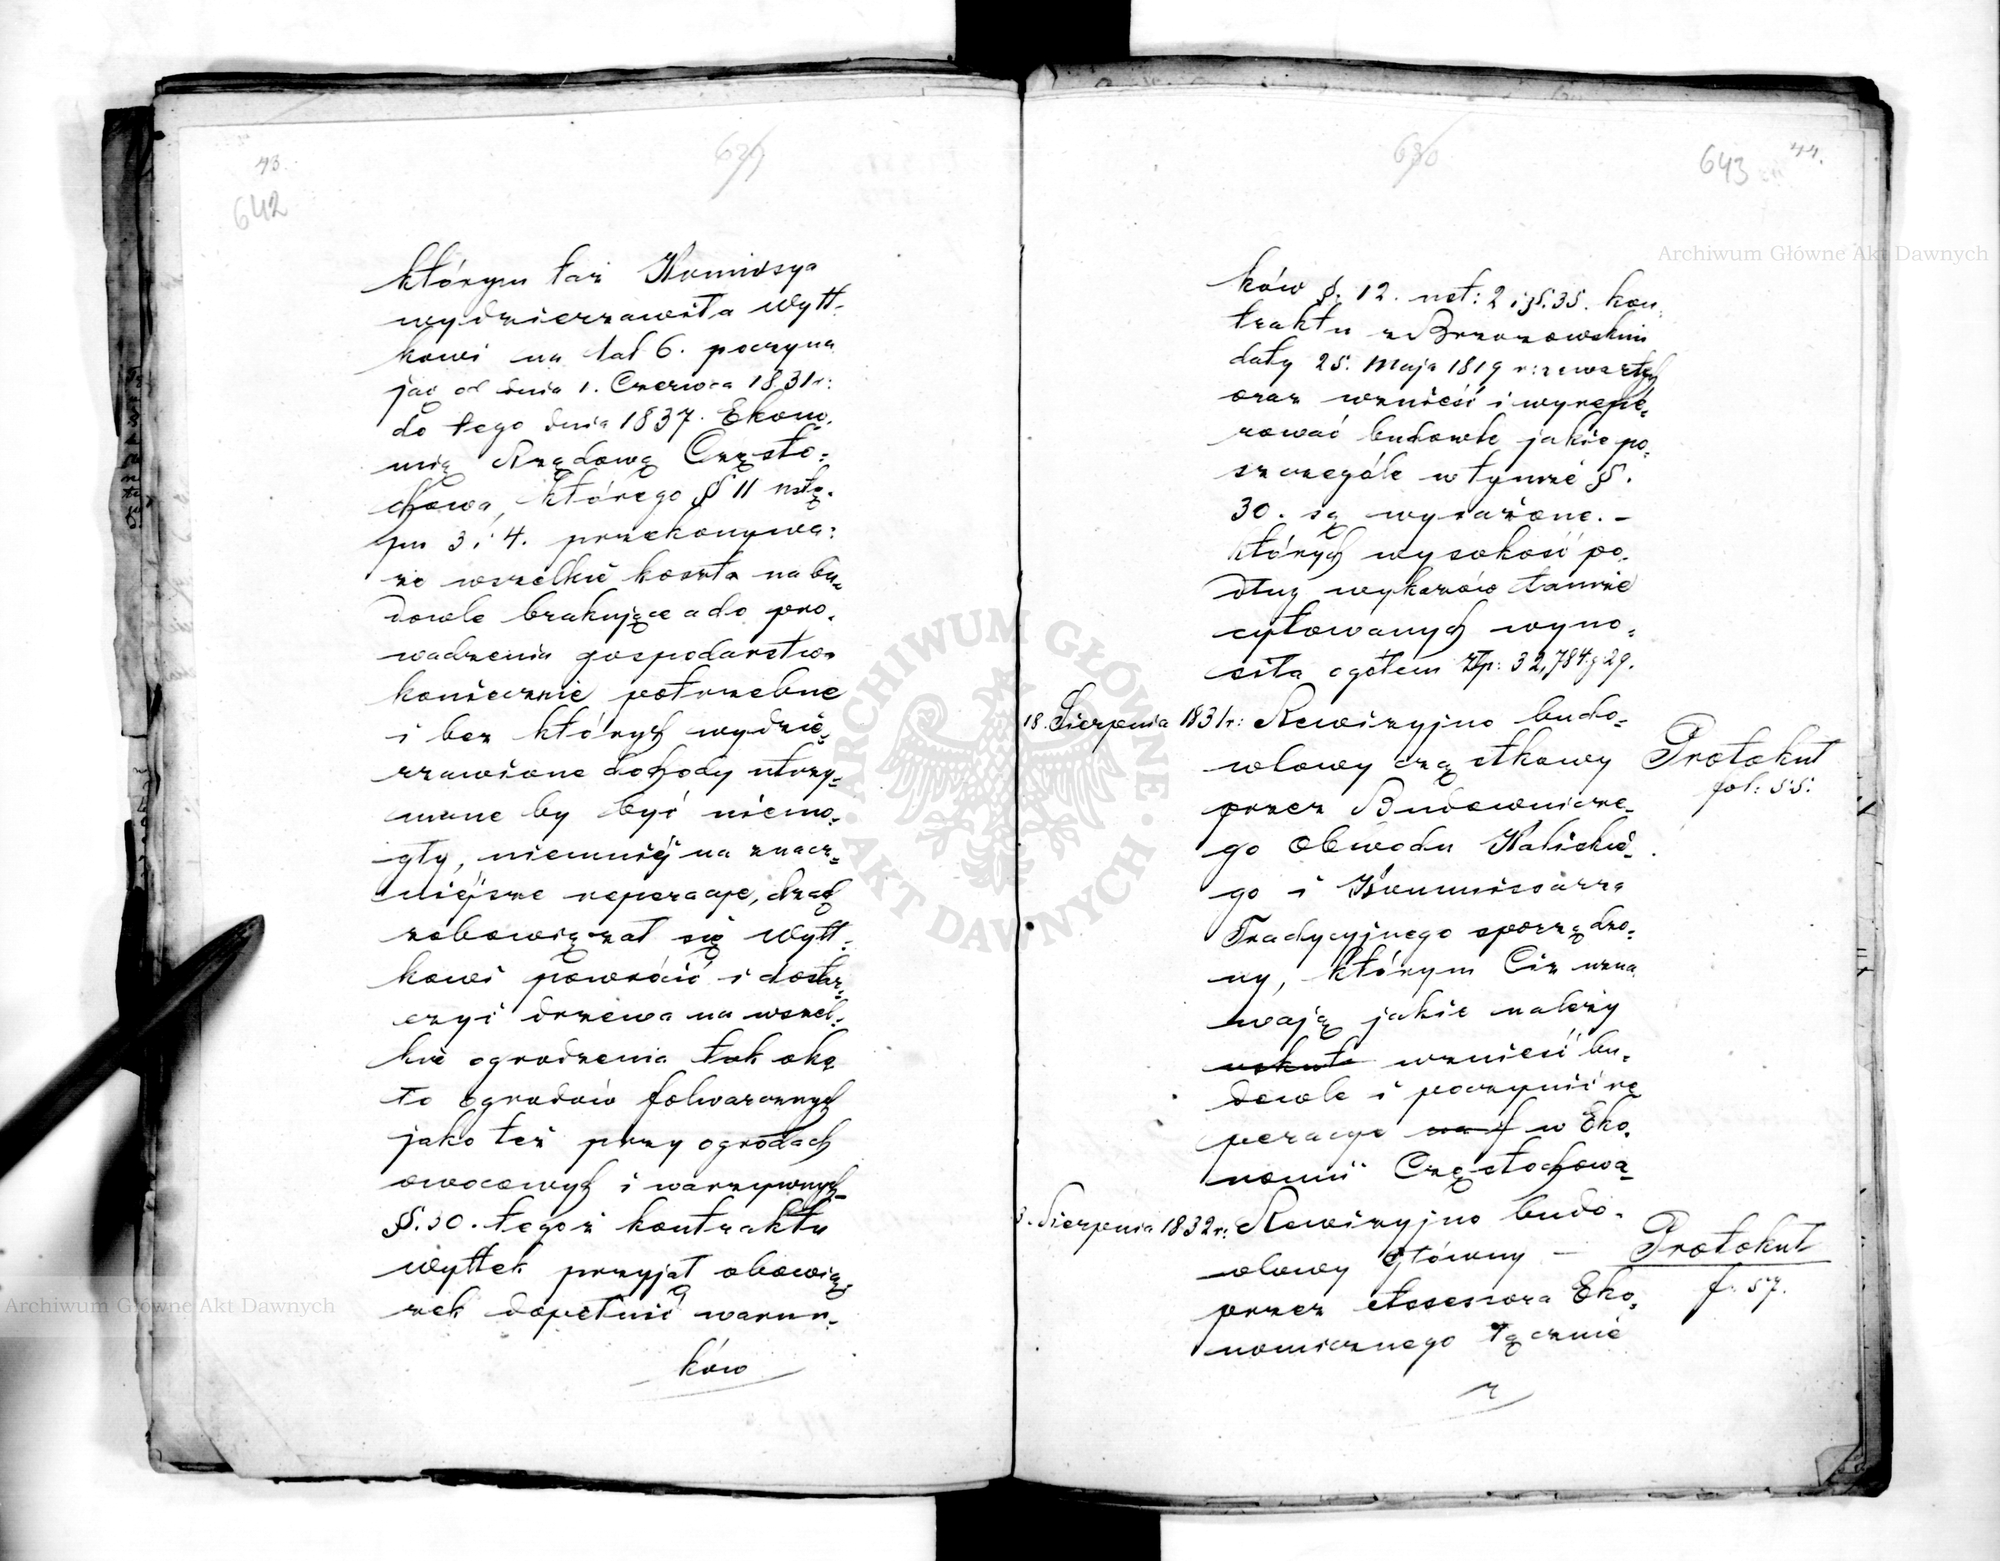 43.
642
629
którym taż Kommissya
wydzierzawiła Wytt-
kowi na lat 6. poczyna
jąc od dnia 1. Czerwca 1831 r:
do tego dnia 1837. Ekono-
mią Rządową Często-
chowa, którego § 11 ustę-
pu 3 i 4. przekonywa:
że wszelkie koszta na bu-
dowle brakujące a do pro-
wadzenia gospodarstwa
koniecznie potrzebne
i bez których wydzie-
rzawione dochody utrzy-
mane by być niemo-
gły, niemniéj na znacz-
niéjsze reperacye,
zobowiązał się Wytt-
kowi powrócić i dostar-
czyć drzewa na wszel-
kie ogrodzenia tak oko
ło ogrodów folwarcznych
jako też przy ogrodach
owocowych i warzywnych
§. 30. tegoż kontraktu
Wyttek przyjął obowią-
zek dopełnić warun-
ków
630
643
44.
ków §. 12. ust: 2 i §. 35. kon-
traktu z Brzozowskim
daty 25. Maja 1819 r: zewartych
oraz wznieść i wyrepe-
rować budowle jakie po-
szczególe w tymże §.
30. są wyrażone. –
których wysokość po-
dług wykazów tamże
cytowanych wyno-
siła ogółem Złp: 32,784 g 29.
18. Sierpnia 1831 r: Rewizyjno budo-
wlowy cząstkowy
Protokuł
fol: 55.
przez Budownicze-
go Obwodu Kaliskie-
go i Kommissarza
Tradycyjnego sporządzo-
ny, którym Ciż uzna
wają jakie należy
wznieść bu-
dowle i poczynić re
peracye na f w Eko-
nomii Częstochowa-
3. Sierpnia 1832 r: Rewizyjno budo-
wlowy Główny –
Protokuł
f. 57.
przez Assessora Eko-
nomicznego łącznie
z
Archiwum Główne Akt Dawnych
Archiwum Główne Akt Dawnych
ARCHIWUM GŁÓWNE · AKT DAWNYCH ·